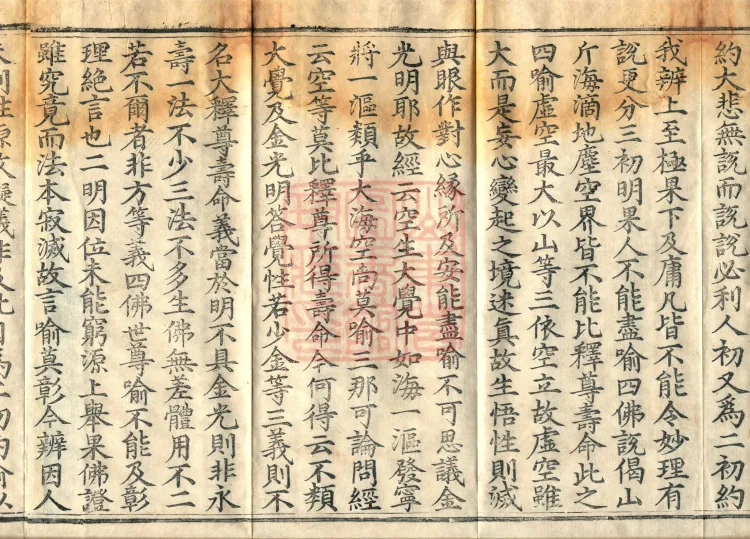 約大悲無說而說說必利人初又爲二初約
我辨上至極果下及庸凡皆不能令妙理有
說更分三初明果人不能盡喻四佛說偈山
斤海滴地塵空界皆不能比釋尊壽命此之
四喻虛空最大以山等三依空立故虛空雖
大而是妄心變起之境迷眞故生悟性則滅
與眼作對心緣所及安能盡喻不可思議金
光明耶故經云空生大覺中如海一漚發寧
將一漚類乎大海空尚莫喻三那可論問經
云空等莫比釋尊所得壽命今何得云不類
大覺及金光明答覺性若少金等三義則不
名大釋尊壽命義當於明不具金光則非永
壽一法不少三法不多生佛無差體用不二
若不爾者非方等義四佛世尊喻不能及彰
理絶言也二明因位未能窮源上舉果佛證
雖究竟而法本寂滅故言喻莫彰今辨因人